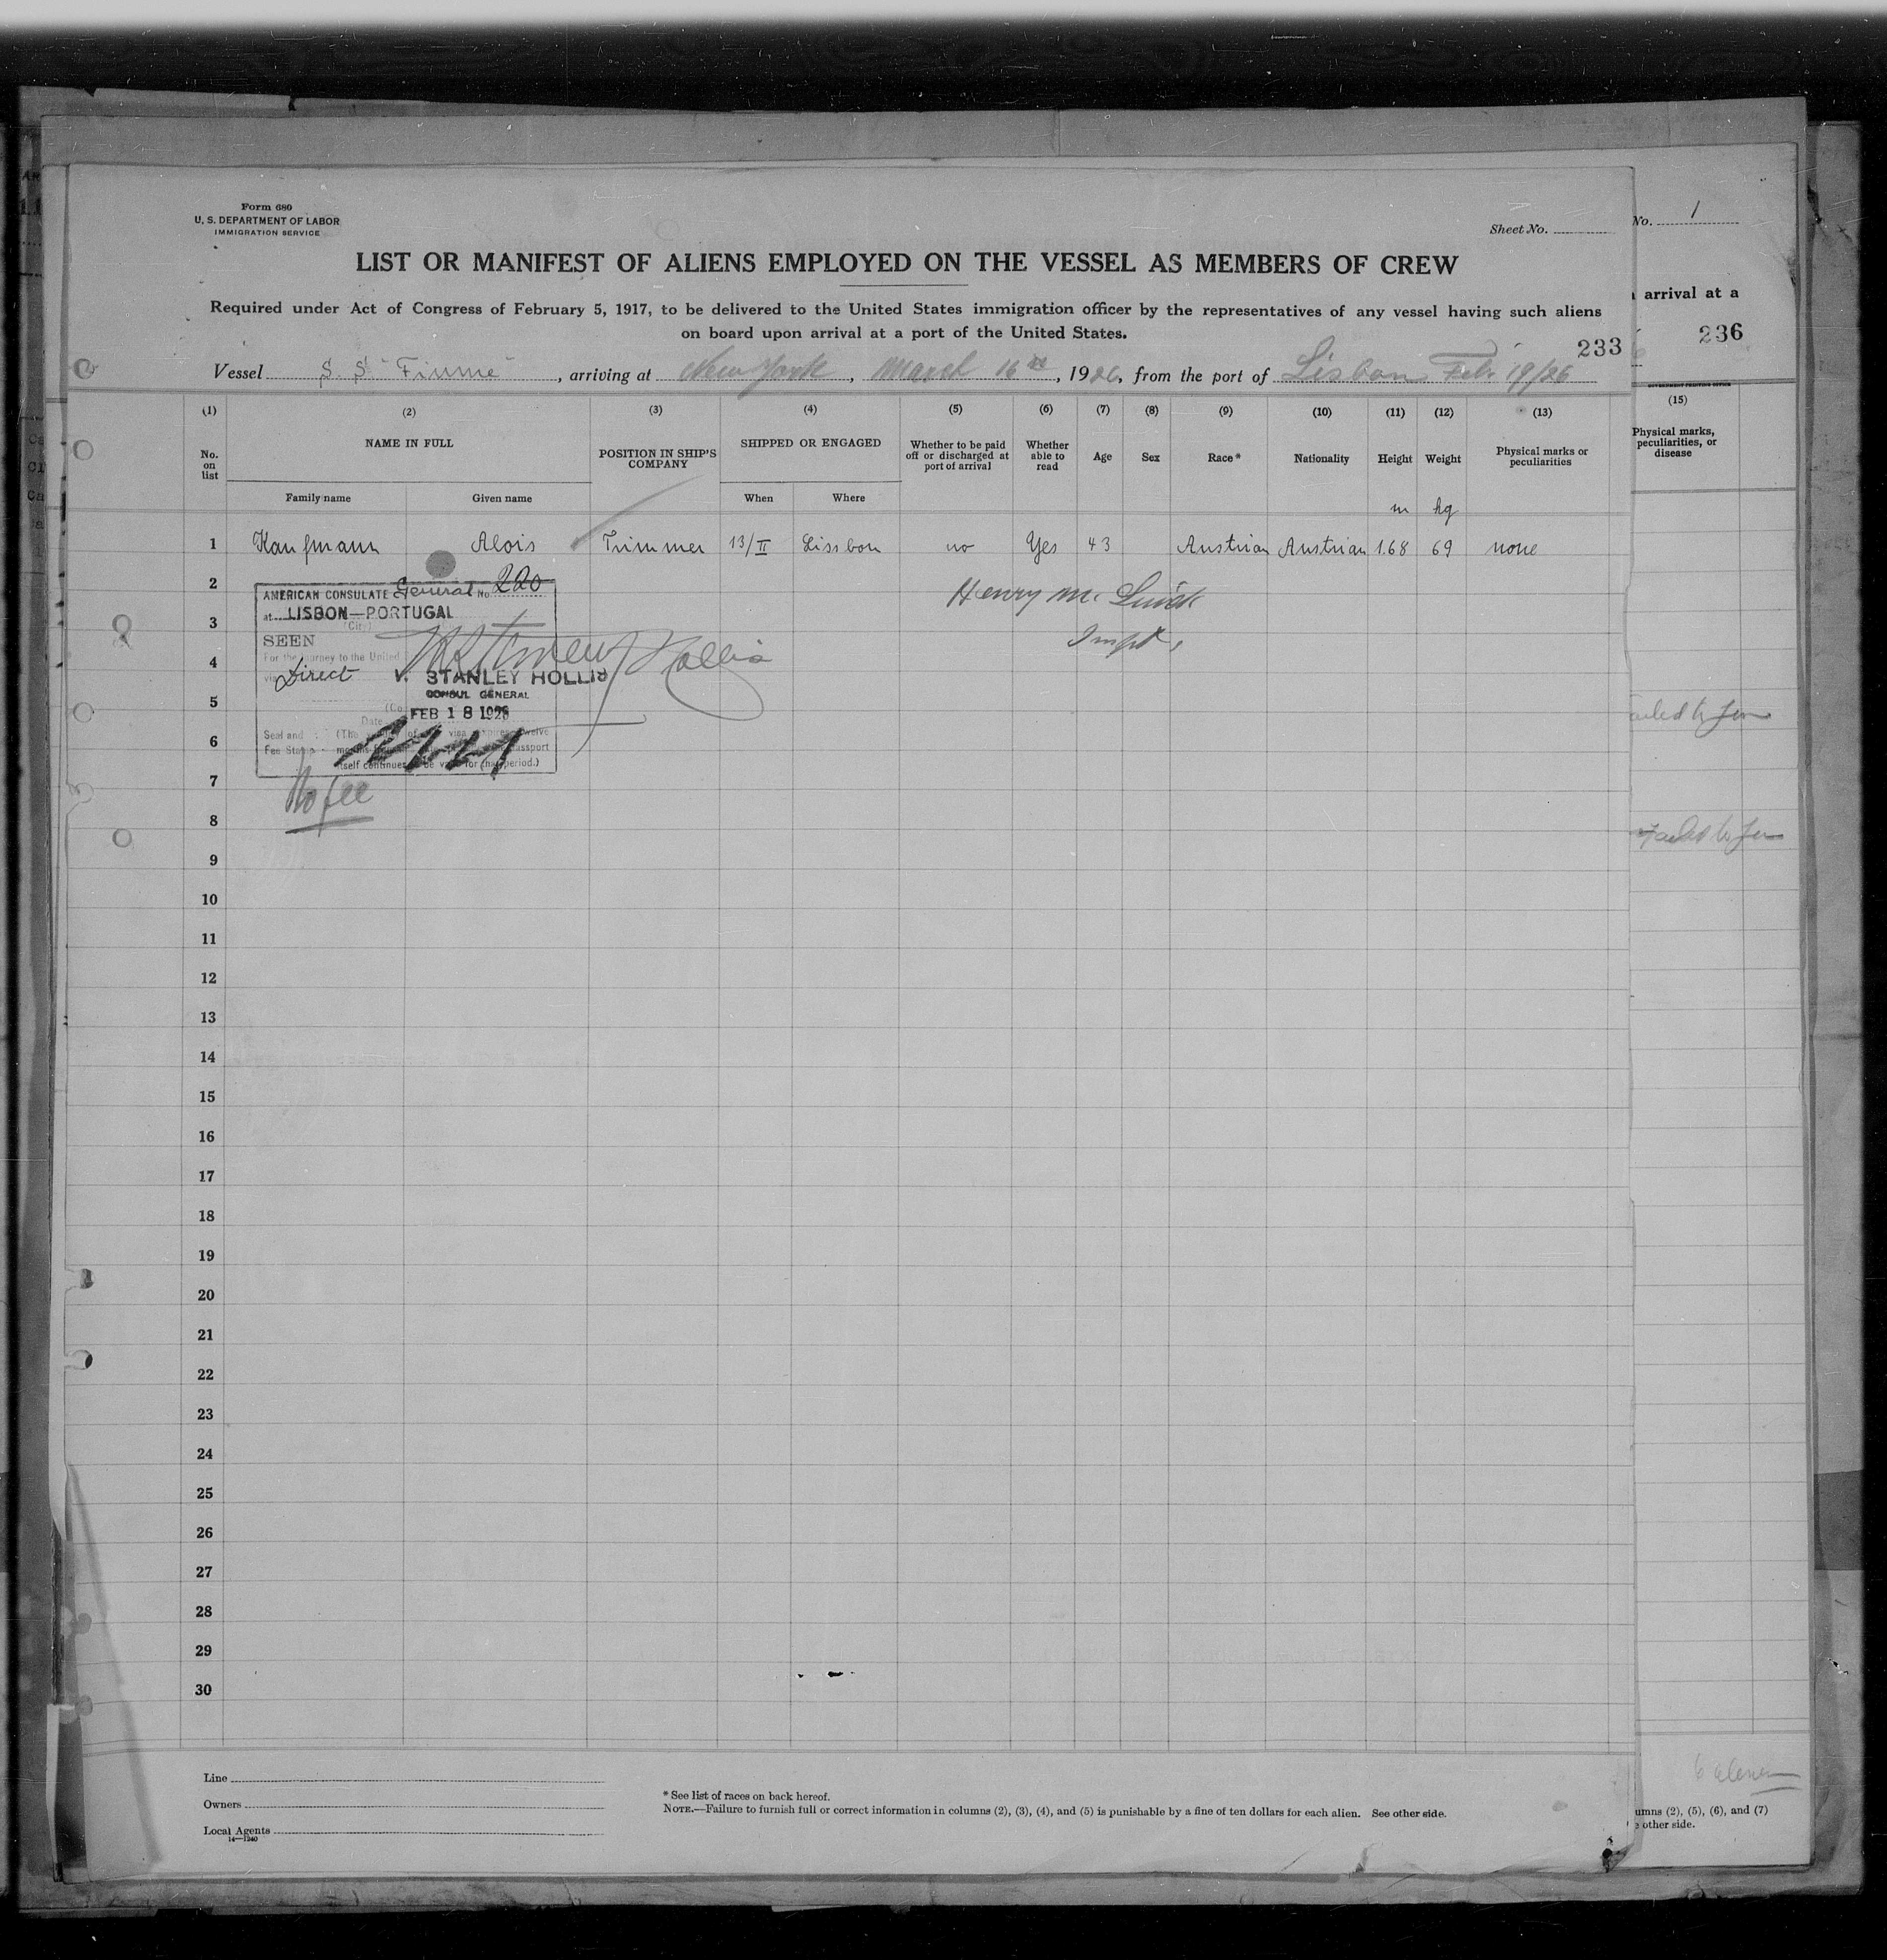 Form 680
U. S. DEPARTMENT OF LABOR
IMMIGRATION SERVICE
Sheet No.
No. 1
LIST OR MANIFEST OF ALIENS EMPLOYED ON THE VESSEL AS MEMBERS OF CREW
Required under Act of Congress of February 5, 1917, to be delivered to the United States immigration officer by the representatives of any vessel having such aliens
on board upon arrival at a port of the United States.
arrival at a
233
236
Vessel S. S. "Fiume", arriving at New York, March 16, 1926, from the port of Lisbon Feb. 19/26
(1) (2) (3) (4) (5) (6) (7) (8) (9) (10) (11) (12) (13)
No. on list
NAME IN FULL
Family name Given name
POSITION IN SHIP'S COMPANY
SHIPPED OR ENGAGED
When Where
Whether to be paid off or discharged at port of arrival
Whether able to read
Age
Sex
Race*
Nationality
Height
Weight
Physical marks or peculiarities
(15)
Physical marks, peculiarities, or disease
m kg
1 Kaufmann Alois Trimmer 13/II Lissbon no Yes 43 Austrian Austrian 1.68 69 none
2
3
4
5
6
7
8
9
10
11
12
13
14
15
16
17
18
19
20
21
22
23
24
25
26
27
28
29
30
AMERICAN CONSULATE General No. 220
at LISBON—PORTUGAL
(City)
SEEN
For the journey to the United
via Direct
V. STANLEY HOLLIS
CONSUL GENERAL
Date FEB 18 1926
Seal and
Fee Stamp
itself continues to be valid for that period.)
No fee
Henry M.
Inspt.
Line
Owners
Local Agents
14—1240
* See list of races on back hereof.
NOTE.—Failure to furnish full or correct information in columns (2), (3), (4), and (5) is punishable by a fine of ten dollars for each alien. See other side.
umns (2), (5), (6), and (7)
e other side.